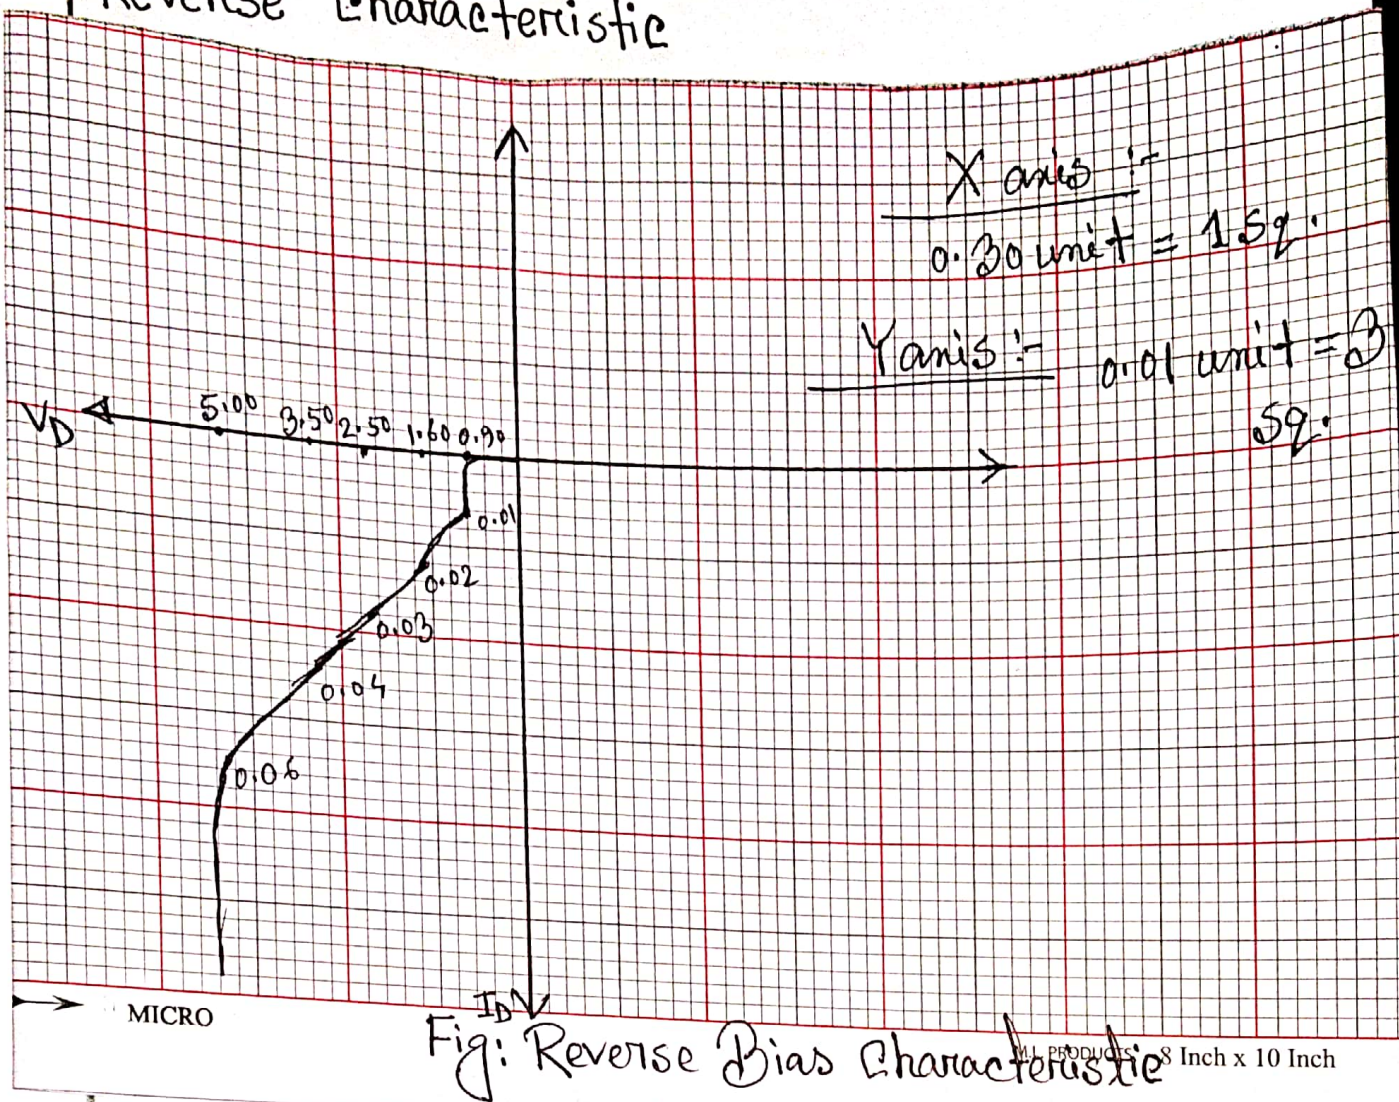 Reverse Characteristic
X axis :-
0.30 unit = 1 Sq.
Y axis :- 0.01 unit = 3
Sq.
VD 5.00 3.50 2.50 1.60 0.90
0.01
0.02
0.03
0.04
0.06
MICRO
ID
Fig: Reverse Bias Characteristic
M.L PRODUCTS 8 Inch x 10 Inch